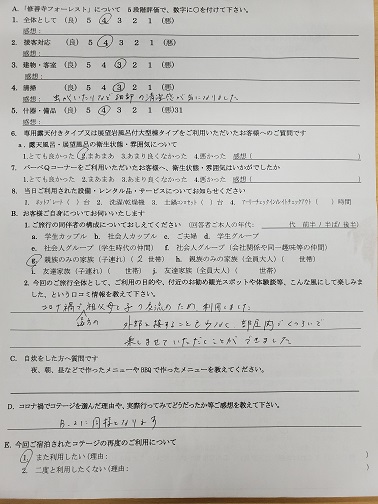 A. 「修善寺フォーレスト」について 5段階評価で、数字に○を付けて下さい。
1. 全体として (良) 5 4 3 2 1 (悪)
感想:
2. 接客対応 (良) 5 4 3 2 1 (悪)
感想:
3. 建物・客室 (良) 5 4 3 2 1 (悪)
感想:
4. 清掃 (良) 5 4 3 2 1 (悪)
感想: 虫がいたりなど細部の清潔感が気になりました
5. 什器・備品 (良) 5 4 3 2 1 (悪)31
感想:
6. 専用露天付きタイプ又は展望岩風呂付大型棟タイプをご利用いただいたお客様へのご質問です
a. 露天風呂・展望風呂の衛生状態・雰囲気について
1.とても良かった 2.まあまあ 3.あまり良くなかった 4.悪かった 感想( )
7. バーベQコーナーをご利用いただいたお客様へ、衛生状態・雰囲気はいかがでしたか
1.とても良かった 2.まあまあ 3.あまり良くなかった 4.悪かった 感想( )
8. 当日ご利用された設備・レンタル品・サービスについてお知らせください
1. ホットプレート( )台 2. 洗濯/乾燥機 3. 土鍋のセット( )台 4. アーリーチェックイン/レイトチェックアウト( )時間
B. お客様ご自身についてお伺いいたします
1. ご旅行の同伴者の構成についておしえてください (回答者ご本人の年代: 代 前半/半ば/後半)
a. 学生カップル b. 社会人カップル c. ご夫婦 d. 学生グループ
e. 社会人グループ(学生時代の仲間) f. 社会人グループ(会社関係や同一趣味等の仲間)
g. 親族のみの家族(子連れ)( 2 世帯) h. 親族のみの家族(全員大人)( 世帯)
i. 友達家族(子連れ)( 世帯) j. 友達家族(全員大人)( 世帯)
2. 今回のご旅行全体として、ご利用の目的や、付近のお勧め観光スポットや体験談等、こんな風にして楽しみました、という口コミ情報を教えて下さい。
コロナ禍で祖父母と子の交流のため利用しました
外部と接することもなく、部屋内でくつろいで
楽しませていただくことができました
C. 自炊をした方へ質問です
夜、朝、昼などで作ったメニューやBBQで作ったメニューを教えてください。
D. コロナ禍でコテージを選んだ理由や、実際行ってみてどうだったか等ご感想を教えて下さい。
B.2に同様となります
E. 今回ご宿泊されたコテージの再度のご利用について
1. また利用したい(理由: )
2. 二度と利用したくない(理由: )